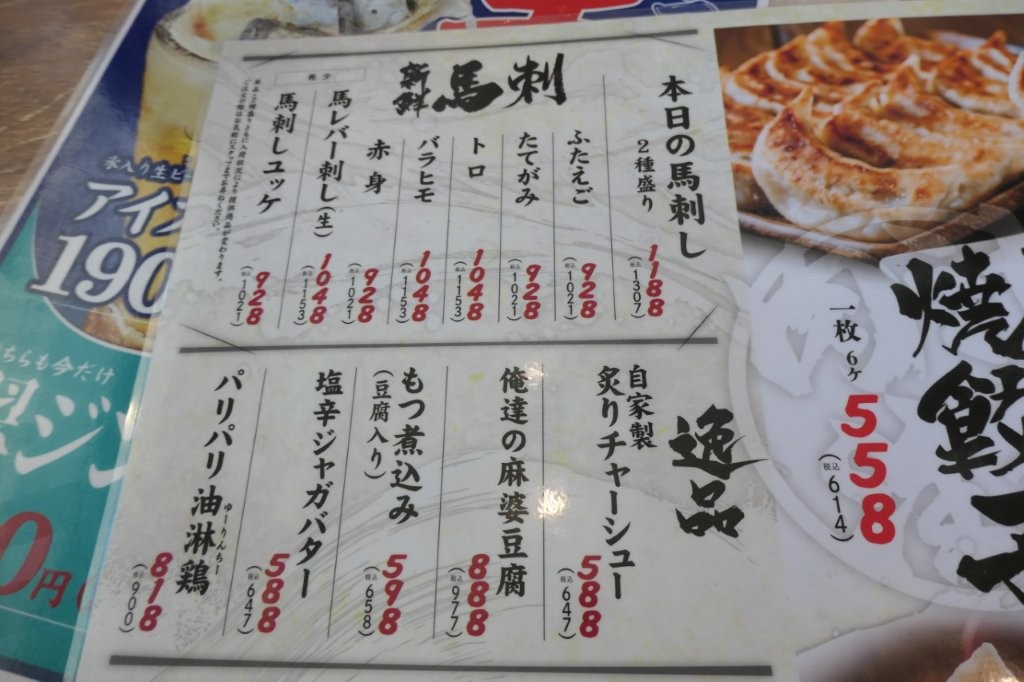 新鮮 馬刺
本日の馬刺し
2種盛り
1188
(税込1307)
ふたえご
928
(税込1021)
たてがみ
928
(税込1021)
トロ
1048
(税込1153)
バラヒモ
1048
(税込1153)
赤身
928
(税込1021)
希少
馬レバー刺し(生)
1048
(税込1153)
馬刺しユッケ
928
(税込1021)
逸品
自家製
炙りチャーシュー
588
(税込647)
俺達の麻婆豆腐
888
(税込977)
もつ煮込み
(豆腐入り)
598
(税込658)
塩辛ジャガバター
588
(税込647)
パリパリ油淋鶏
ゆーりんちー
818
(税込900)
焼餃子
一枚 6ケ
558
(税込614)
氷入り生ビ
アイ
190
ちらも今だけ
ジン
0円